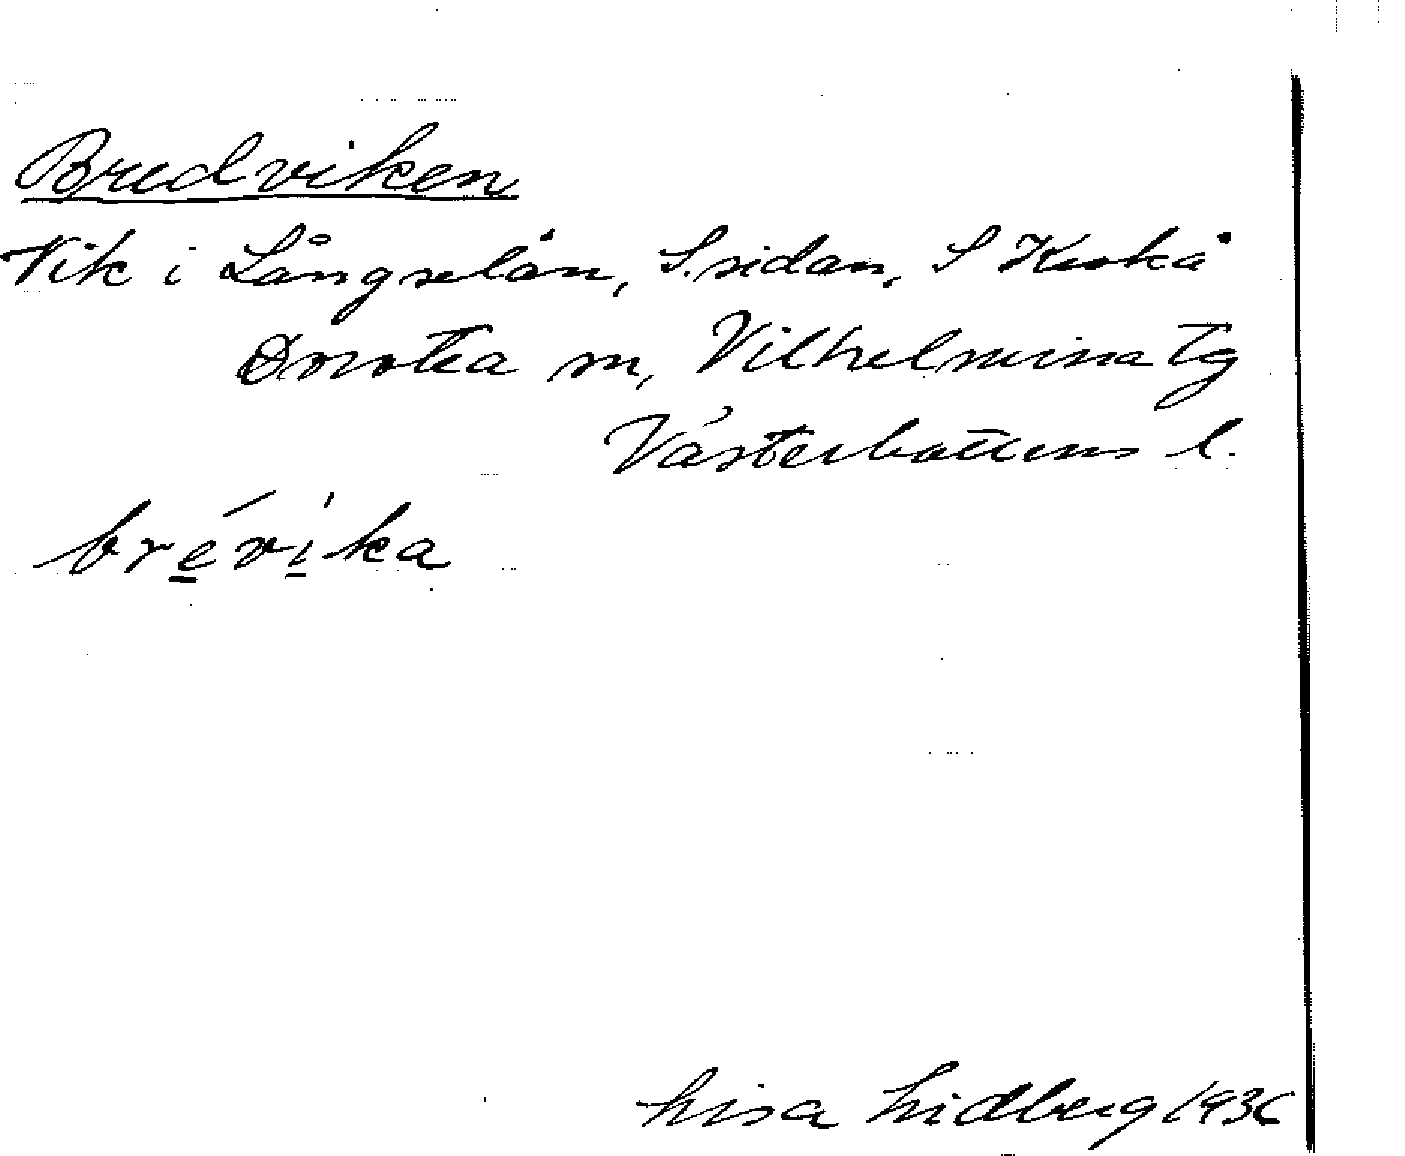 Bredviken
Vik i Långselån, S.sidan, S Kroka
Dorotea sn, Vilhelmina tg
Västerbottens l.
brévika
Lisa Lidberg 1936